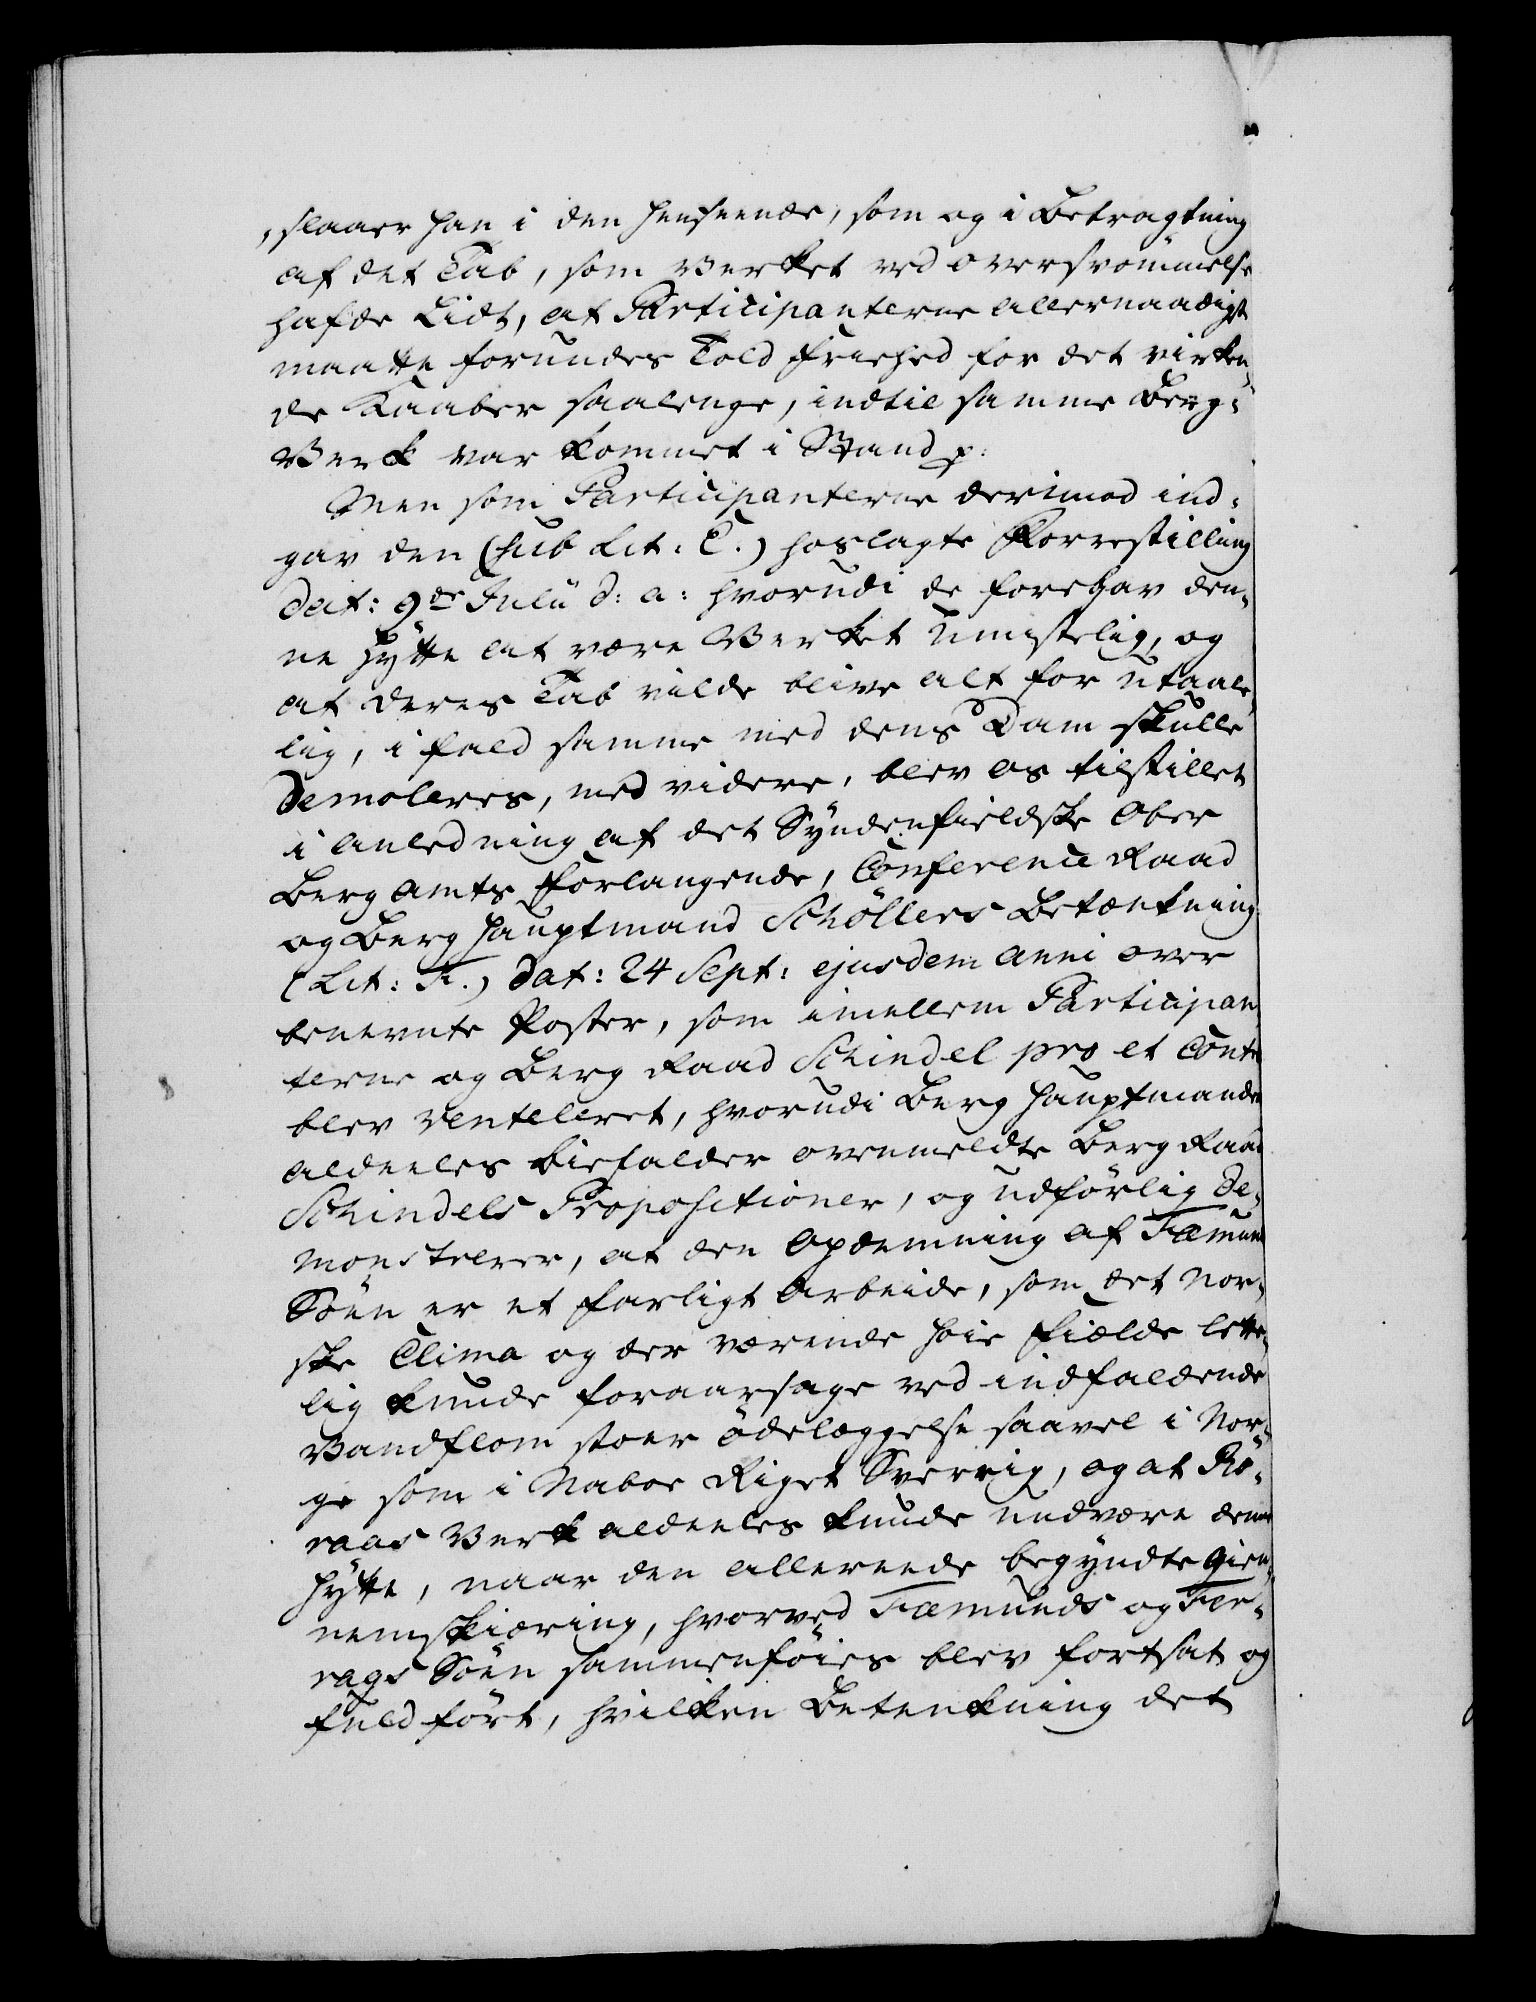 , slaaer han i den henseende, som og i Betragtning
af det Tab, som Verket ved oversvömmelse
hafde Lidt, at Participanterne allernaadigst
maatte forundes Told friehed for det virken¬
de Kaaber saalenge, indtil samme Berg¬
Verk var kommet i Stand p:
Men som Participanterne derimod ind¬
gav den (sub Lit: E.) hoslagte Forrestilling
dat: 9de Julii d: a: hvorudi de foregav den¬
ne hytte at være Verket umistelig, og
at deres Tab vilde blive alt for utaale¬
lig, i fald samme med dens Dam skulle
demoleres, med videre, blev os tilstillet
i anledning af det Syndenfieldske Ober
Berg Amts Forlangende, Conference Raad
og Berg Hauptmand Schöllers Betænkning
(Lit: F.) dat: 24 Sept: ejusdem anni over
benevnte Poster, som imellem Participan
terne og Berg Raad Schindel pro et Contr
blev ventileret, hvorudi Berg Hauptmanden
aldeeles biefalder ovenmeldte Berg Raad
Schindels Propositioner, og udförlig de¬
monstrerer, at den Opdemning af Fæmund
Söen er et farligt Arbeide, som det Nor¬
ske Clima og der værende høie Fielde lette¬
lig kunde foraarsage ved indfaldende
Vandflom stoer ödelæggelse saavel i Nor¬
ge som i Naboe Riget Sverrig, og at Rö¬
raas Verk aldeeles kunde undvære denne
hytte, naar den allereede begyndte Gien¬
nemskiæring, hvorved Fæmunds og Fer¬
rags Söen sammenföies blev fortsat og
fuldfört, hvilken Betenkning det